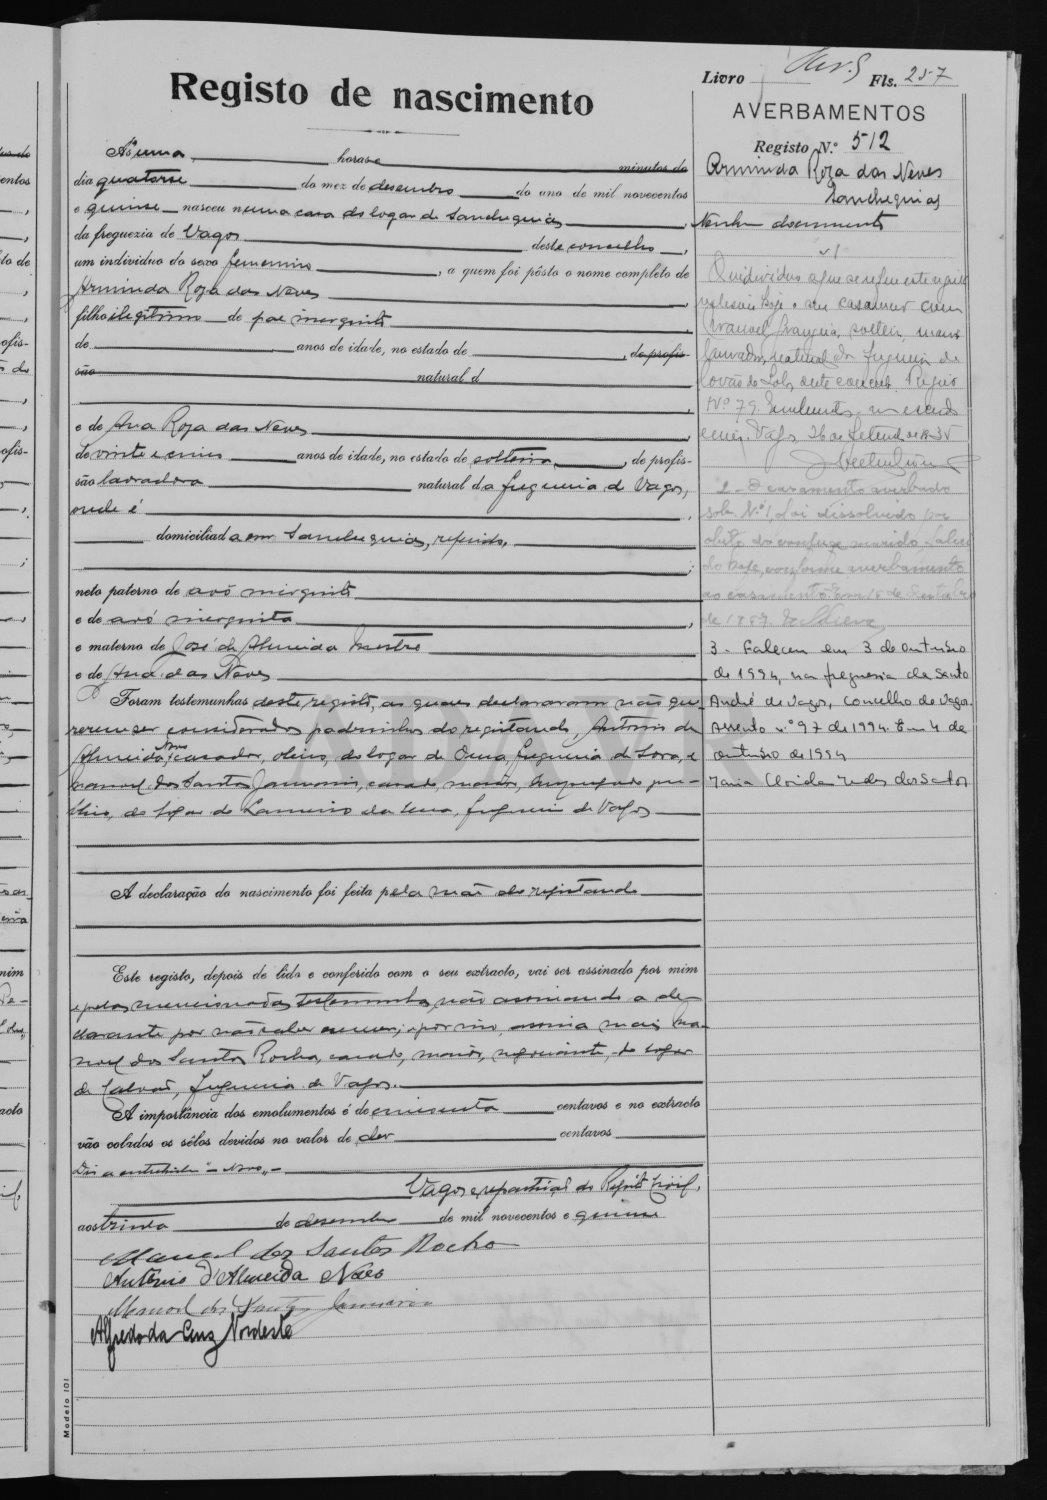 Livro Fls. 257
Registo de nascimento
AVERBAMENTOS
Registo N.º 512
Arminda Roza das Neves
Sanchequias
Nenhum documento
Ás uma horas e minutos do
dia quatorse do mez de desembro do ano de mil novecentos
e quinse nasceu numa casa do logar de Sanchequias,
da freguezia de Vagos deste concelho,
um individuo do sexo femenino, a quem foi pôsto o nome completo de
Arminda Roza das Neves,
filho ilegitimo de pae incognito
de anos de idade, no estado de, de profis-
são natural d
e de Ana Roza das Neves,
de vinte e cinco anos de idade, no estado de solteira, de profis-
são lavradora natural da freguezia de Vagos,
onde é,
domiciliada em Sanchequias, referido,
neto paterno de avô incognito
e de avó incognita,
e materno de José de Almeida Mestre
e de Ana das Neves
Foram testemunhas deste registo, as quaes declararam não que
rerem ser considerados padrinhos do registando, Antonio de
Almeida Novo, casado, oleiro, do logar de Ouca, freguezia de Soza, e
Manoel dos Santos Januario, casado, maior, empregado pu-
blico, do logar de da, freguezia de Vagos
A declaração do nascimento foi feita pela mãe do registando
Este registo, depois de lido e conferido com o seu extracto, vai ser assinado por mim
e pelas mencionadas testemunhas, não assinando a de-
clarante por não saber escrever, e por isso, assina mais Ma-
noel dos Santos Rocha, casado, maior, negociante, do logar
de Calvão, freguezia de Vagos.
A importância dos emolumentos é de cincoenta centavos e no extracto
vão colados os sêlos devidos no valor de dez centavos
Diz a entrelinha "Novo"
Vagos e repartição do Registo Civil,
aos trinta de desembro de mil novecentos e quinse
Manoel dos Santos Rocha
António d'Almeida Novo
Manoel dos Santos Januario
Alfredo da Cruz Nordeste
Modelo 101
1
O individuo a que se refere este registo
hoje o seu casamento com
Manoel, solteiro, maior
lavrador, natural da freguezia de
Covão do Lobo, deste concelho. Registo
Nº 79.
Vagos, 26 de Setembro de 1935
2 - O casamento averbado
sob Nº 1, foi dissolvido por
obito do conjuge marido, faleci
do hoje, conforme averbamento
ao casamento. Em 18 de Setembro
3 - Faleceu em 3 de outubro
de 1994, na freguesia de Santo
André de Vagos, Concelho de Vagos.
Assento nº 97 de 1994. Em 4 de
outubro de 1994
ADAVR